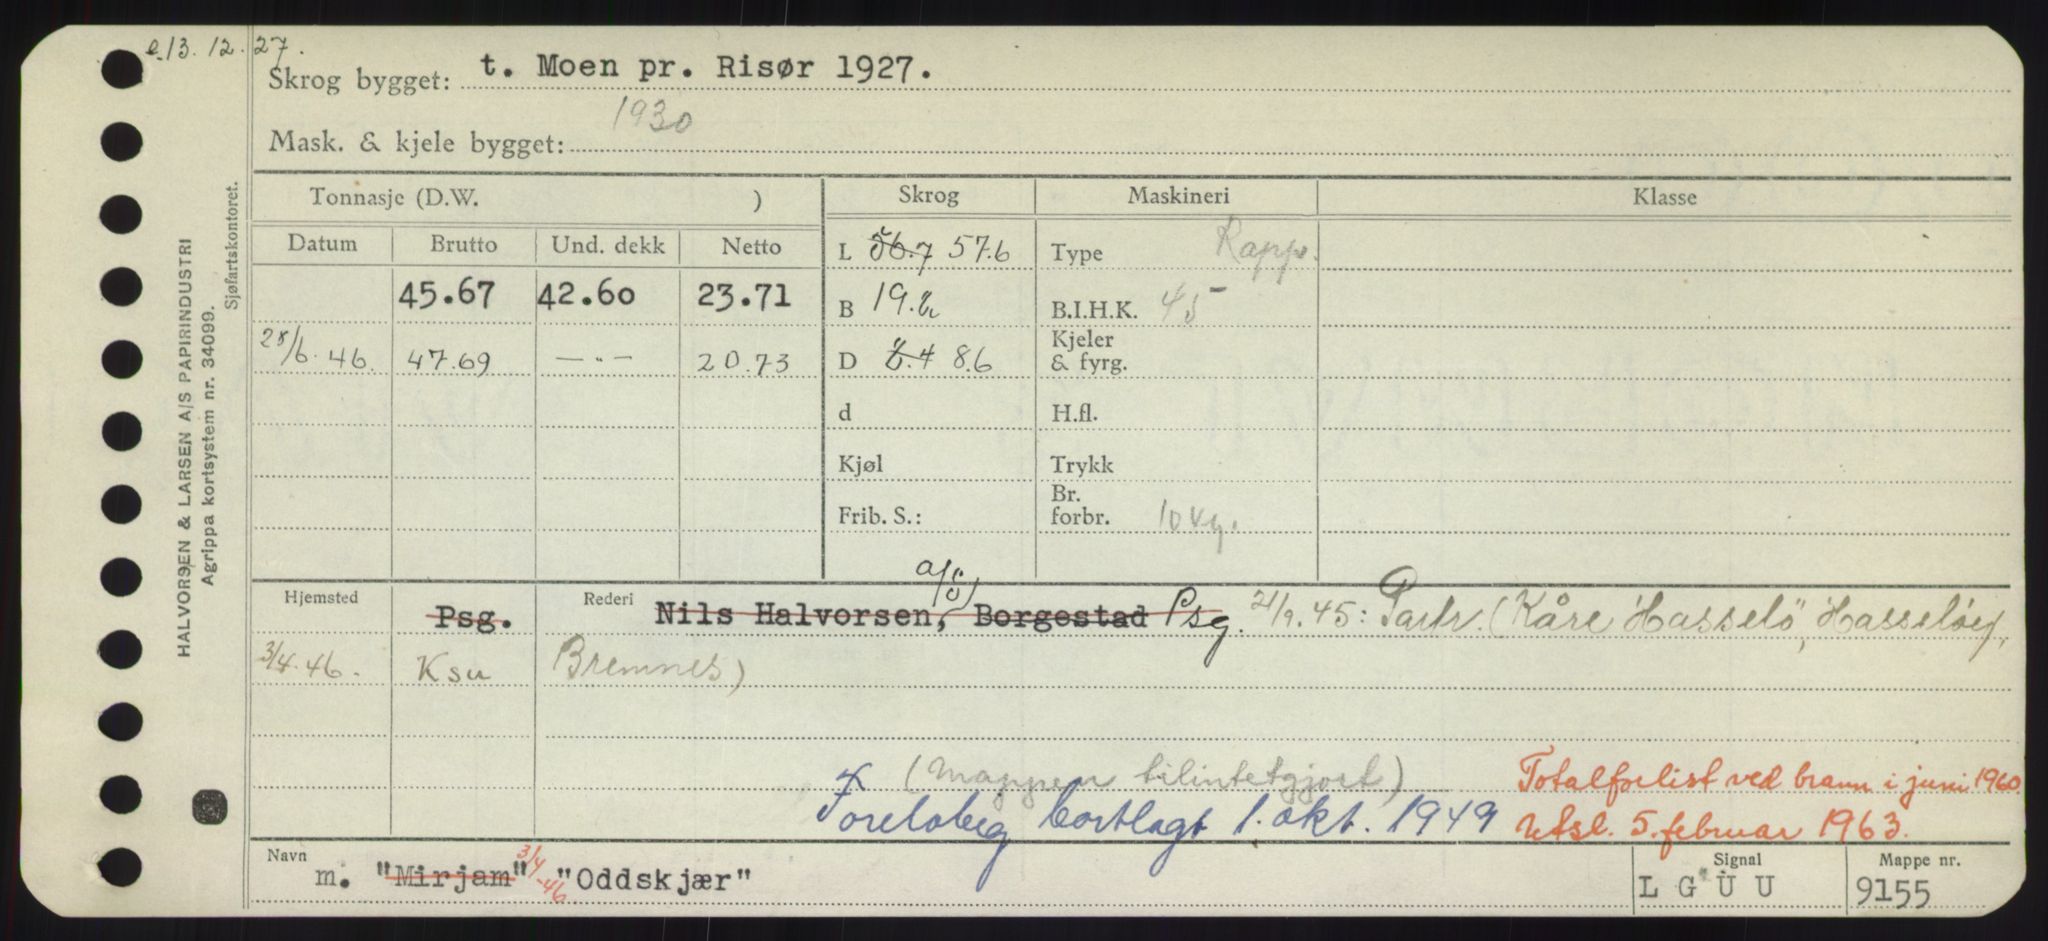 e. 13. 12. 27.
Skrog bygget: t. Moen pr. Risør 1927.
1930
Mask. & kjele bygget:
HALVORSEN & LARSEN A/S PAPIRINDUSTRI
Agrippa kortsystem nr. 34099.
Sjøfartskontoret.
Tonnasje (D.W. ) Skrog Maskineri Klasse
Datum Brutto Und. dekk Netto L 57.6 Type Rapp.
45.67 42.60 23.71 B 19. B.I.H.K. 45
28/6. 46. 47.69 —"— 20.73 D 8.6 Kjeler & fyrg.
d H.fl.
Kjøl Trykk
Frib. S.: Br. forbr. 10 kg.
Hjemsted Psg. Rederi Nils Halvorsen, Borgestad Psg. 21/9. 45: Partr. (Kåre Hasselö, Hasseløy,
3/4. 46. Ksu Bremnes)
(Mappen tilintetgjort)
Foreløbig bortlagt 1. okt. 1949
Totalforlist ved brann i juni 1960
Utsl. 5. februar 1963.
Navn m. "Mirjam" 3/4-46 "Oddskjær" Signal L G U U Mappe nr. 9155